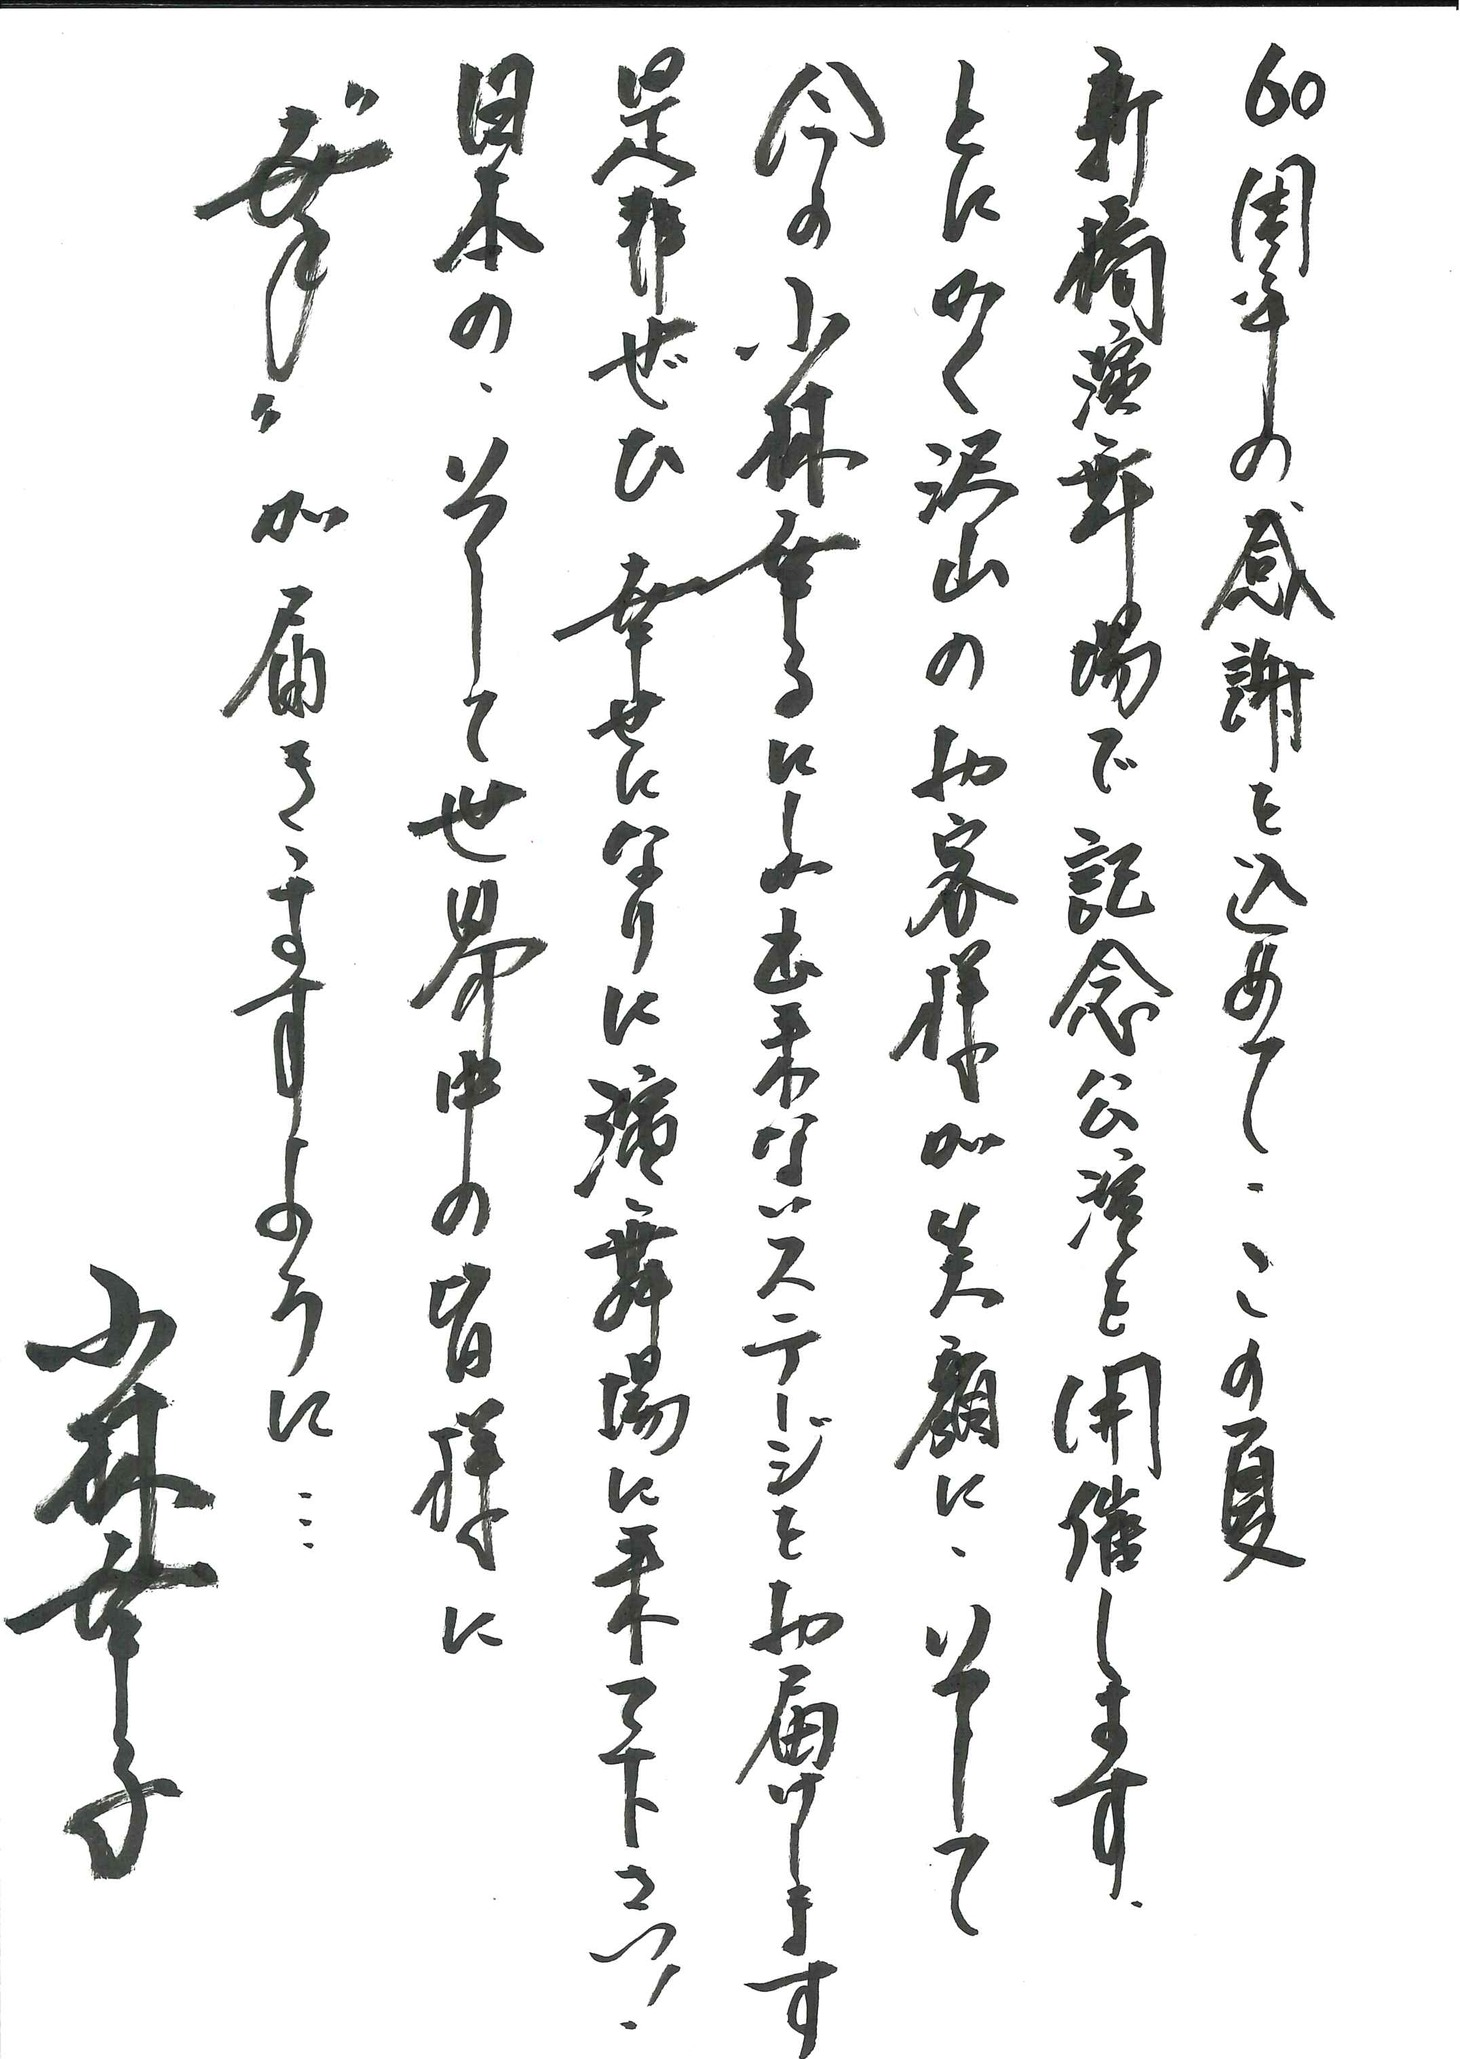 60周年の感謝を込めて、この夏
新橋演舞場で記念公演を開催します.
とにかく沢山のお客様が笑顔に、そして
今の小林幸子にしか出来ないステージをお届けします
是非ぜひ 幸せになりに演舞場に来て下さい!
日本の、そして世界中の皆様に
"幸"が届きますように…
小林幸子